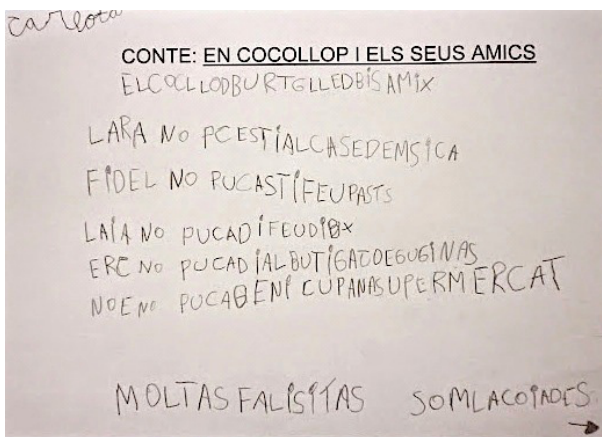 carlota
CONTE: EN COCOLLOP I ELS SEUS AMICS
ELCOCLLODBURTGLLEDBISAMIX
LARA NO PCESTIALCASEDEMSICA
FIDEL NO PUCASTIFEUPASTS
LAIA NO PUCADIFEUDIBX
ERC NO PUCADIALBUTIGATDEGUGINAS
NOE NO PUCABENI CUPANASUPERMERCAT
MOLTAS FALISITAS SOMLACOIADES